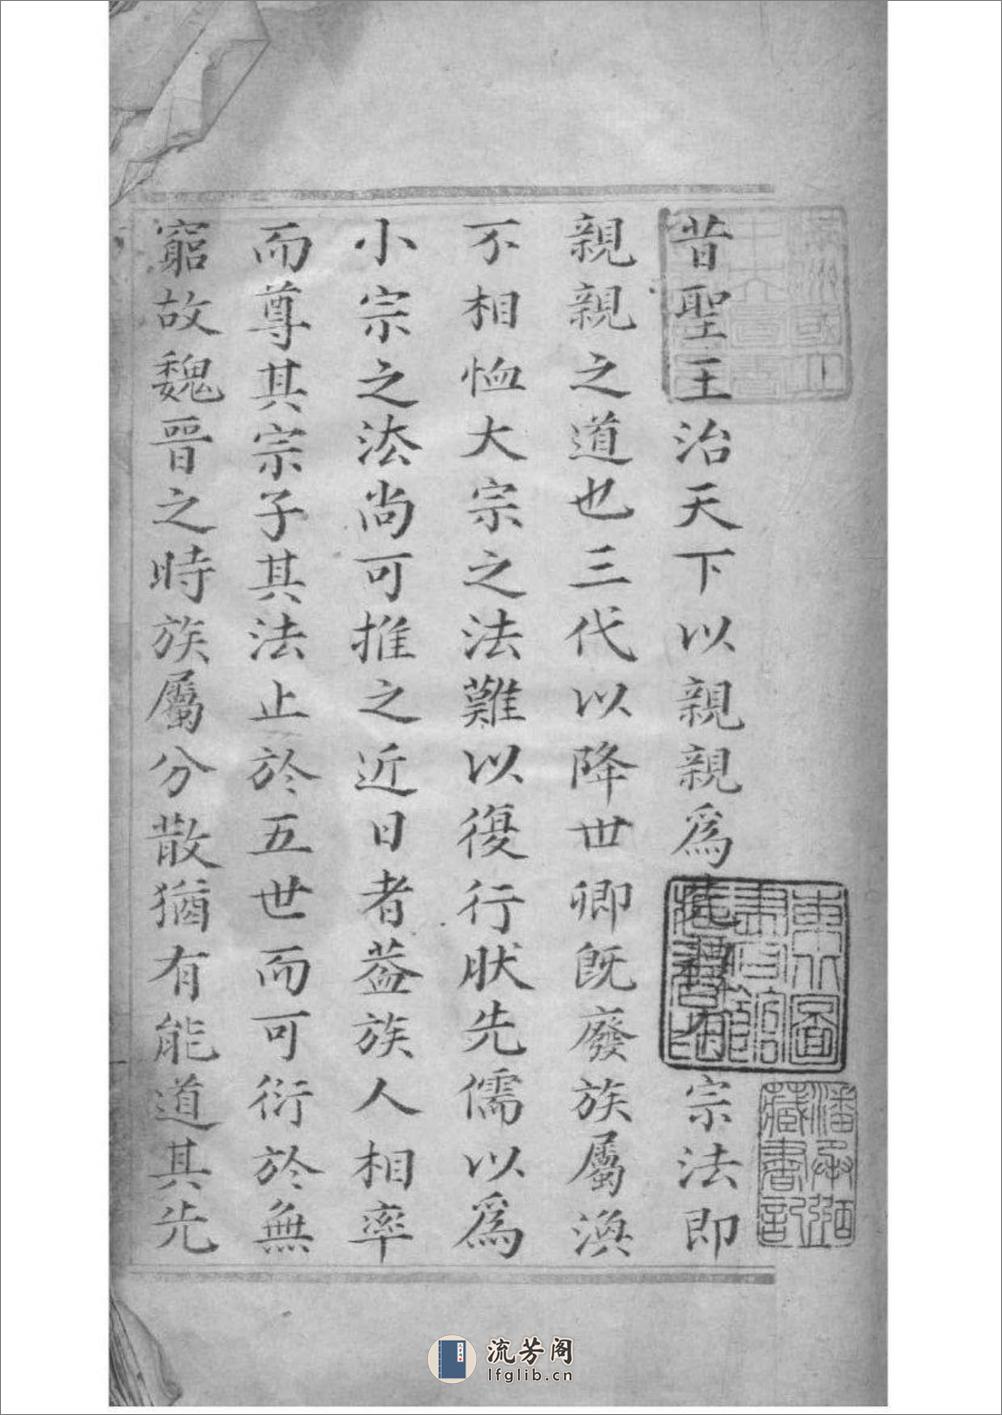 昔聖王治天下以親親爲宗法即
親親之道也三代以降世卿既廢族屬渙
不相恤大宗之法難以復行狀先儒以爲
小宗之法尚可推之近日者葢族人相率
而尊其宗子其法止於五世而可衍於無
窮故魏晉之時族屬分散猶有能道其先
東方圖書館
潘承弼藏書記
流芳阁
lfglib.cn